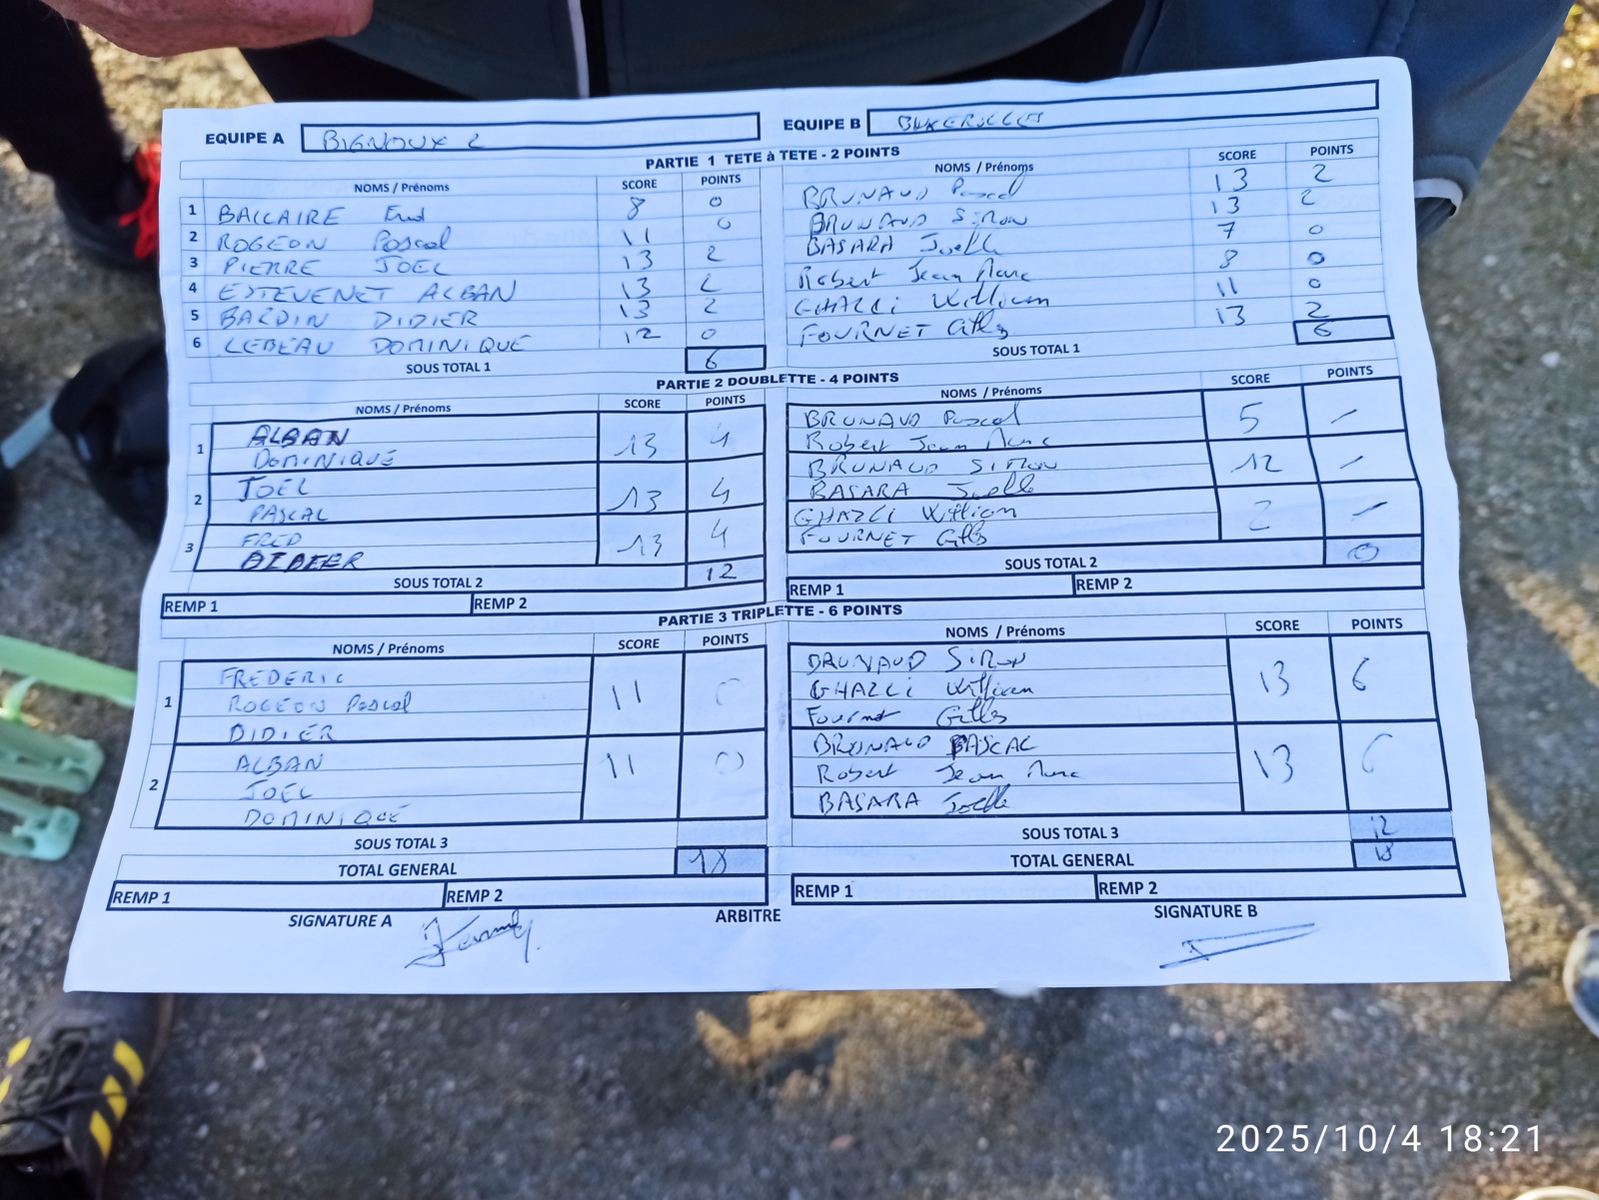 EQUIPE A BIGNOUX 2 EQUIPE B BUXEROLLES
PARTIE 1 TETE à TETE - 2 POINTS
NOMS / Prénoms SCORE POINTS NOMS / Prénoms SCORE POINTS
1 BALLAIRE Fred 8 0 BRUNAUD Pascal 13 2
2 ROGEON Pascal 11 0 BRUNAUD SiMON 13 2
3 PIERRE JOEL 13 2 BASARA Joelle 7 0
4 ESTEVENET ALBAN 13 2 Robert Jean Marc 8 0
5 BARDIN DIDIER 13 2 GHAZLi William 11 0
6 LEBEAU DOMINIQUE 12 0 FOURNET Gilles 13 2
SOUS TOTAL 1 6 SOUS TOTAL 1 6
PARTIE 2 DOUBLETTE - 4 POINTS
NOMS / Prénoms SCORE POINTS NOMS / Prénoms SCORE POINTS
1 ALBAN 13 4 BRUNAUD Pascal 5 -
DOMINIQUE Robert Jean Marc
2 JOEL 13 4 BRUNAUD SiMON 12 -
PASCAL BASARA Joelle
3 FRED 13 4 GHAZLi William 2 -
DIDIER FOURNET Gilles
SOUS TOTAL 2 12 SOUS TOTAL 2 0
REMP 1 REMP 2 REMP 1 REMP 2
PARTIE 3 TRIPLETTE - 6 POINTS
NOMS / Prénoms SCORE POINTS NOMS / Prénoms SCORE POINTS
1 FREDERIC 11 0 BRUNAUD SiMON 13 6
ROGEON Pascal GHAZLi William
DIDIER Fournet Gilles
2 ALBAN 11 0 BRUNAUD PASCAL 13 6
JOEL Robert Jean Marc
DOMINIQUE BASARA Joelle
SOUS TOTAL 3 SOUS TOTAL 3 12
TOTAL GENERAL 18 TOTAL GENERAL 18
REMP 1 REMP 2 REMP 1 REMP 2
SIGNATURE A ARBITRE SIGNATURE B
2025/10/4 18:21